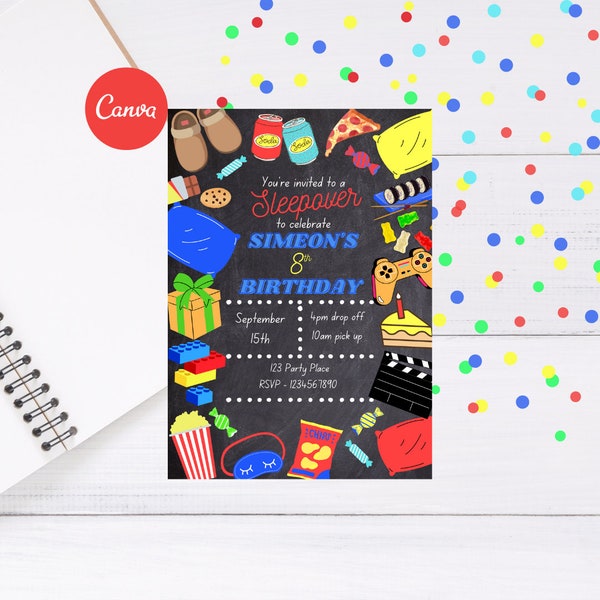 Canva
Soda
Soda
You're invited to a
Sleepover
to celebrate
SIMEON'S
8th
BIRTHDAY
September
15th
4pm drop off
10am pick up
123 Party Place
RSVP - 1234567890
CHIPS